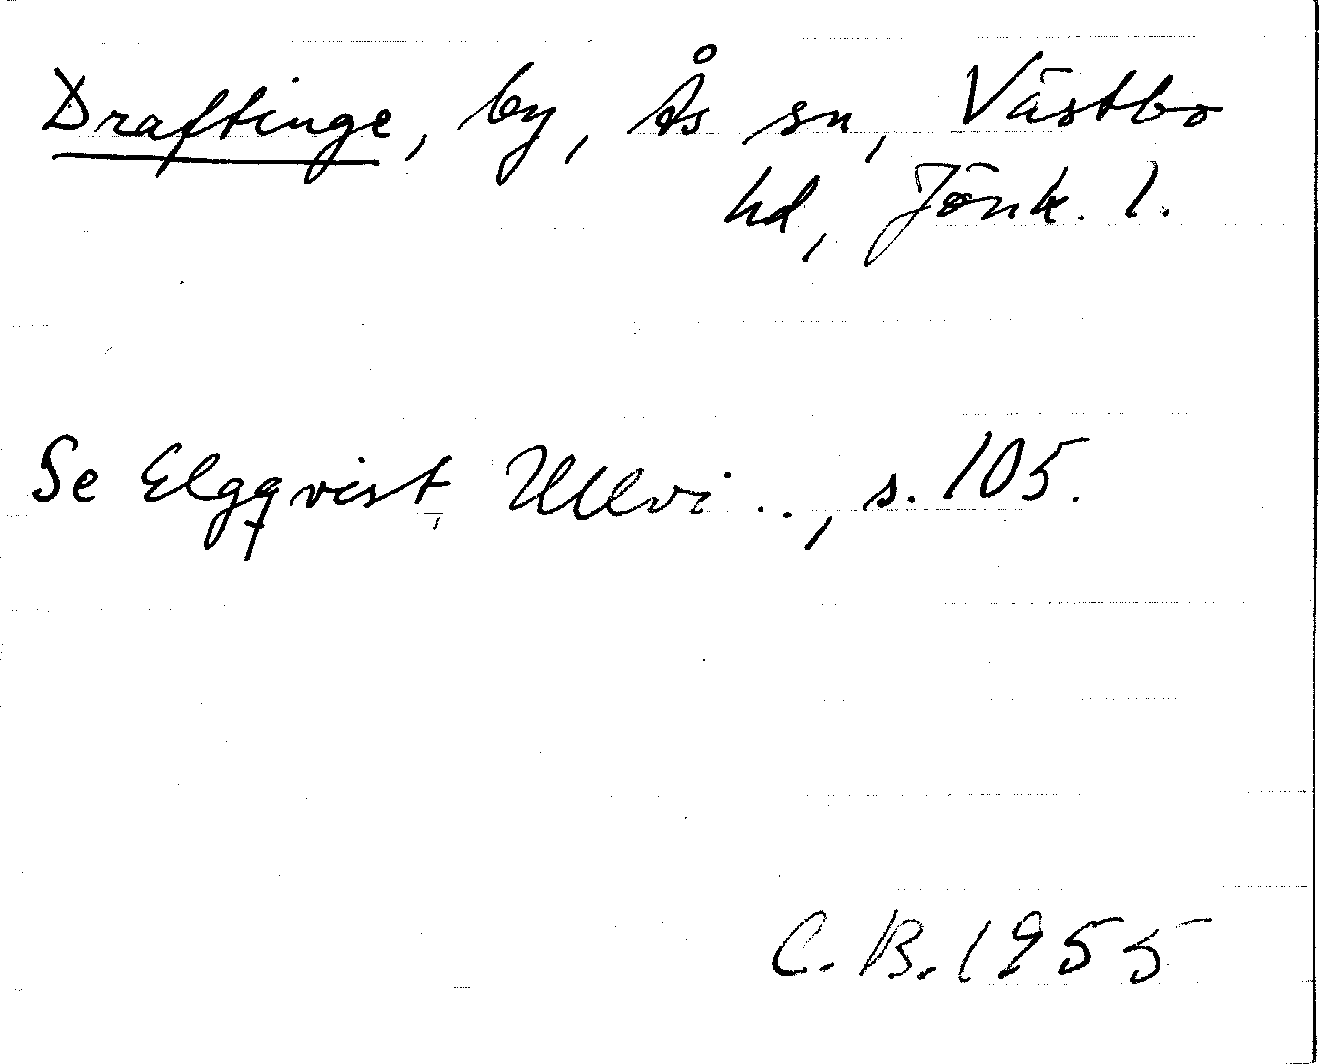 Draftinge, by, Ås sn, Västbo
hd, Jönk. l.
Se Elgqvist, Ullvi . ., s. 105.
C. B. 1955